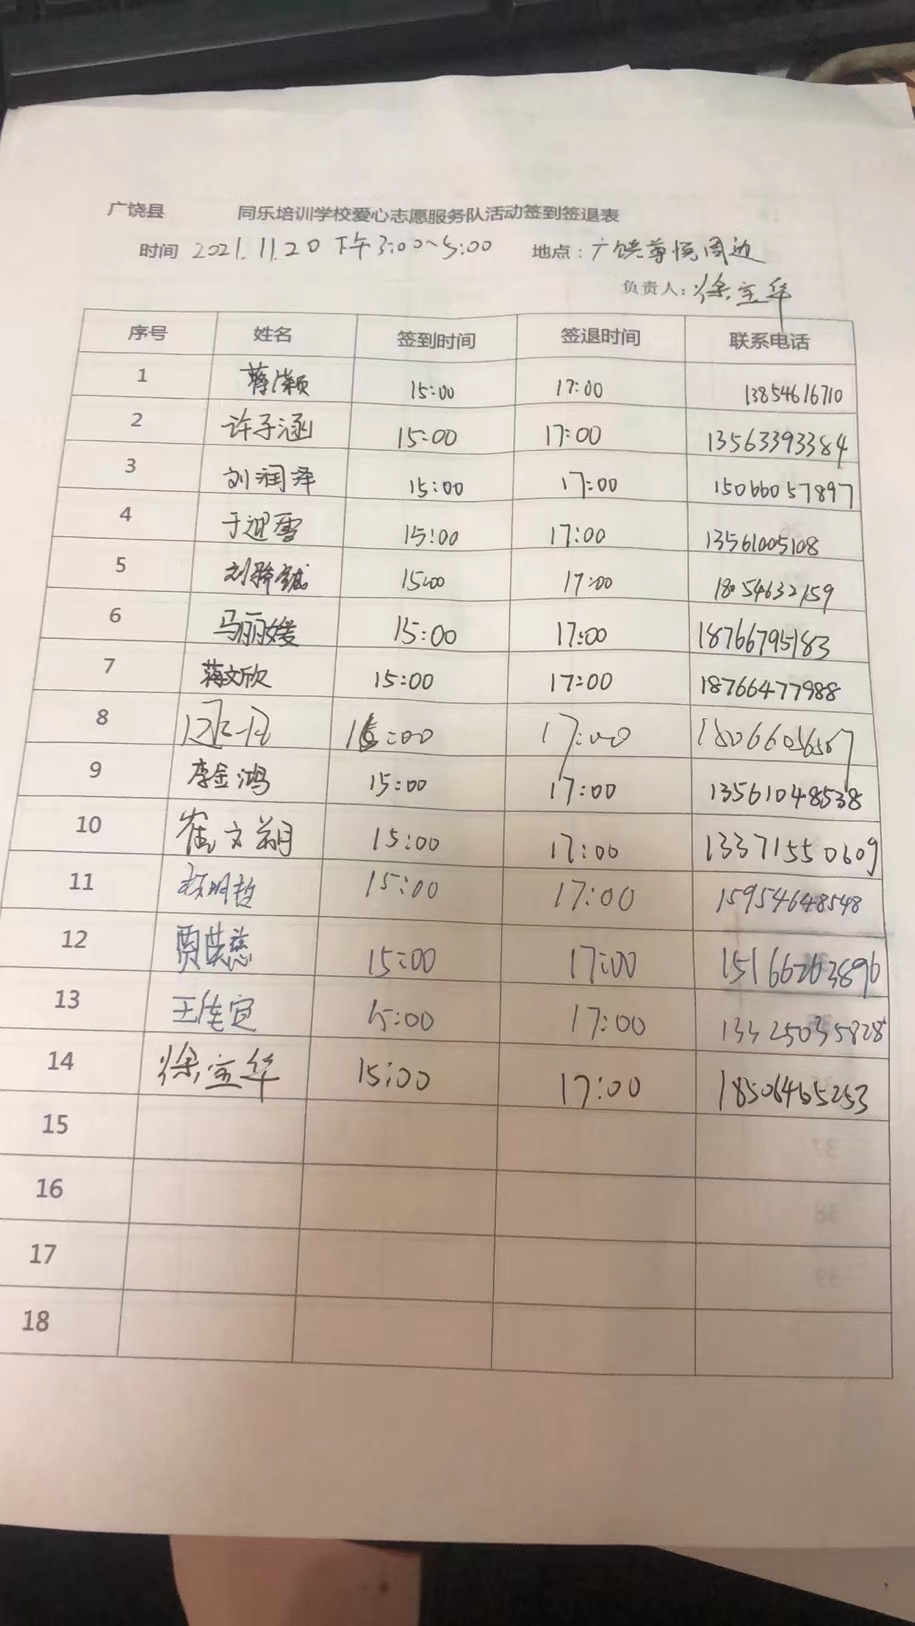 广饶县 同乐培训学校爱心志愿服务队活动签到签退表
时间 2021.11.20 下午3:00~5:00 地点：广饶尊悦周边
负责人：徐宝华
序号 姓名 签到时间 签退时间 联系电话
1 蒋滢颖 15:00 17:00 13854616710
2 许子涵 15:00 17:00 13563393384
3 刘润泽 15:00 17:00 15066057897
4 于迎雪 15:00 17:00 13561005108
5 15:00 17:00 18054632159
6 马丽媛 15:00 17:00 18766795183
7 蒋文欣 15:00 17:00 18766477988
8 15:00 17:00
9 李金鸿 15:00 17:00 13561048538
10 崔文翔 15:00 17:00 13371550609
11 15:00 17:00 15954648548
12 贾萁慈 15:00 17:00 15166263896
13 王佳宜 15:00 17:00 13325035828
14 徐宝华 15:00 17:00 18506465253
15
16
17
18